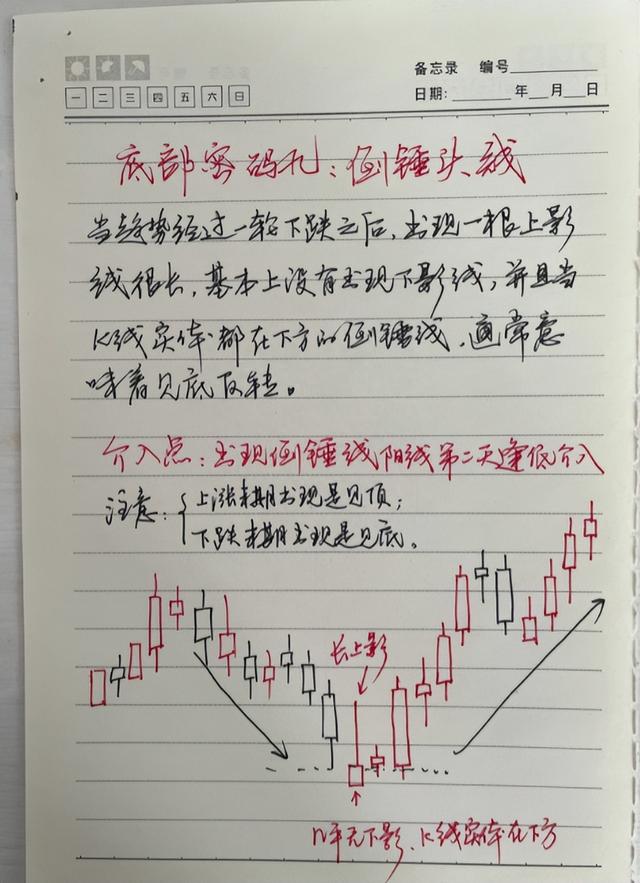 备忘录 编号
一 二 三 四 五 六 日
日期: 年 月 日
底部密码扎:倒锤头线
当趋势经过一轮下跌之后,出现一根上影
线很长,基本上没有出现下影线,并且当
K线实体都在下方的倒锤线,通常意
味着见底反转。
介入点:出现倒锤线阳线第二天逢低介入
注意:
上涨末期出现是见顶;
下跌末期出现是见底。
长上影
几乎无下影、K线实体在下方